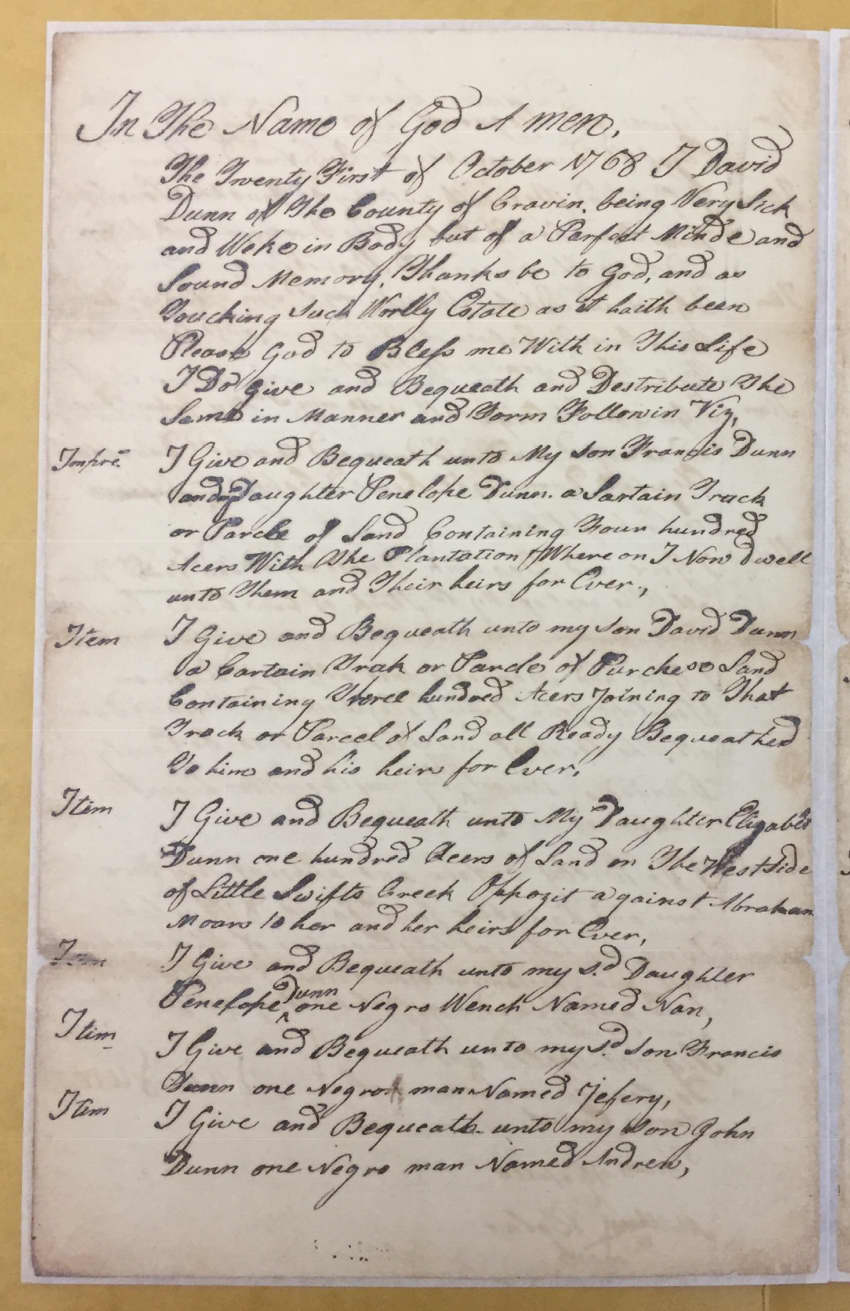 In The Name of God A men,
The Twenty First of October 1768 I David
Dunn of The County of Cravin, being Very Sick
and Weke in Body but of a Parfact Minde and
Sound Memory, Thanks be to God, and as
Touching Such Worlly Estate as it haith been
Please God to Bless me With in This Life
I Do give and Bequeath and Destribute The
Same in Manner and Form Followin Viz,
Impre I Give and Bequeath unto My Son Francis Dunn
and Daughter Penelope Dunn. a Sartain Track
or Parcle of Land Containing Four hundred
Acers With The Plantation Where on I Now dwell
unto Them and Their heirs for Ever,
Item I Give and Bequeath unto my son David Dunn
a Cartain Trak or Parcle of Purchese Land
Containing Three hundred Acers Joining to That
Track or Parcel of Land all Ready Bequeathed
To him and his heirs for Ever,
Item I Give and Bequeath unto My Daughter Elizabth
Dunn one hundred Acers of Land on The West Side
of Little Swifts Creek Oppozit against Abraham
Moars to her and her heirs for Ever,
Item I Give and Bequeath unto my sd. Daughter
Penelope ^Dunn one Negro Wench Named Nan,
Itim I Give and Bequeath unto my sd. Son Francis
Dunn one Negro man Named Jefery,
Itim I Give and Bequeath unto my Son John
Dunn one Negro man Named Andrew,